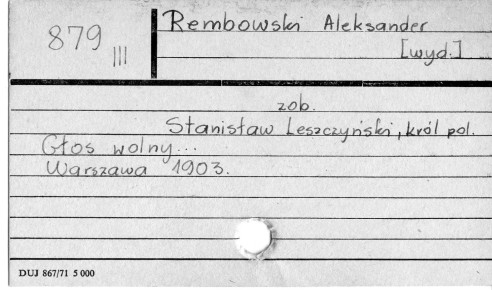 879
III
Rembowski Aleksander
[wyd.]
zob.
Stanisław Leszczyński, król pol.
Głos wolny...
Warszawa 1903.
DUJ 867/71 5 000